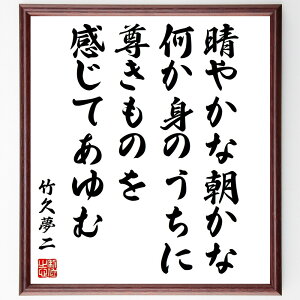 晴やかな朝かな
何か身のうちに
尊きものを
感じてあゆむ
竹久夢二